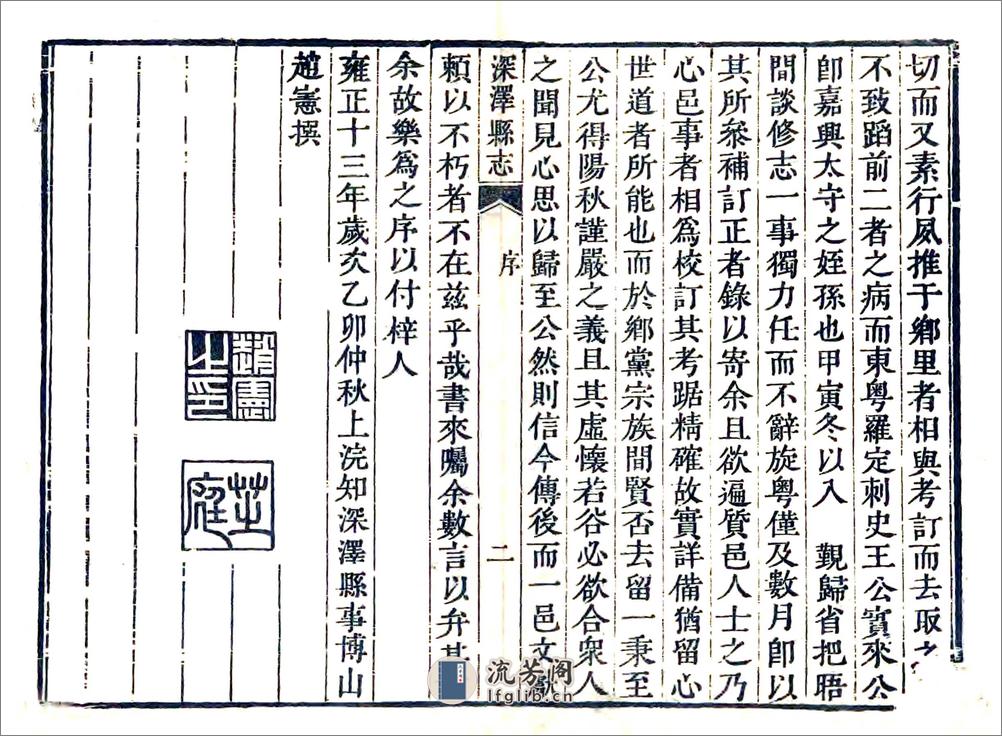 切而又素行夙推于鄉里者相與考訂而去取之
不致蹈前二者之病而東粵羅定刺史王公實來公
卽嘉興太守之姪孫也甲寅冬以入　覲歸省把晤
間談修志一事獨力任而不辭旋粵僅及數月卽以
其所叅補訂正者錄以寄余且欲遍質邑人士之乃
心邑事者相爲校訂其考踞精確故實詳備猶留心
世道者所能也而於鄉黨宗族間賢否去留一秉至
公尤得陽秋謹嚴之義且其虛懷若谷必欲合衆人
之聞見心思以歸至公然則信今傳後而一邑文獻
深澤縣志　序　二
賴以不朽者不在兹乎哉書來囑余數言以弁其
余故樂爲之序以付梓人
雍正十三年歲次乙卯仲秋上浣知深澤縣事博山
趙憲撰
趙憲之印
芷庭
流芳阁
lfglib.cn